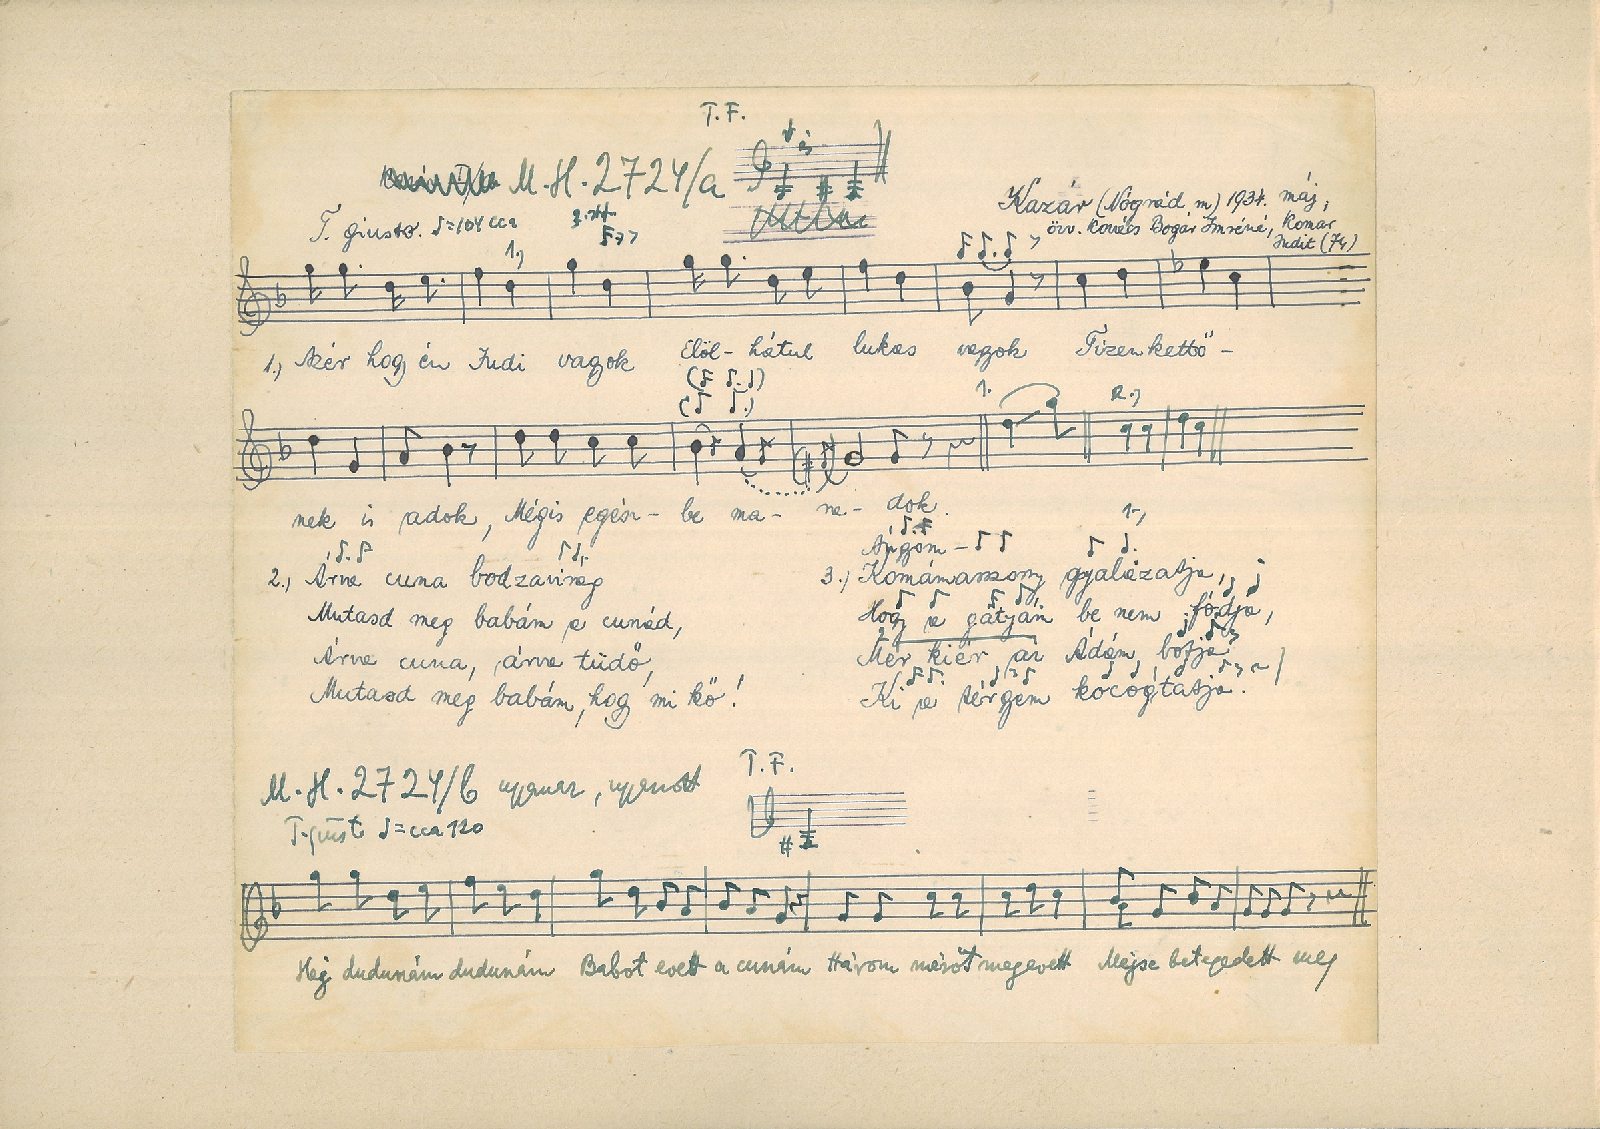 T. F.
M. H. 2724/a
Kazár (Nógrád m) 1934. máj,
T. giusto. ♩=104 cca
özv. Kovács Bogár Imréné, Komar
Judit (74)
1.)
1., Azér hogy én Judi vagok Elöl-hátul lukas vagok Tizenkettő-
1. 2.,
nek is adok, Mégis egész-be ma-ra-dok.
1.,
Angom-
2., Árva cuna bodzavirág
Mutasd meg babám a cunád,
Árva cuna, árva tüdő,
Mutasd meg babám, hogy mi kő!
3., Komámasszony gyalázatja,
Hogy a gatyám be nem fódja,
Mer kiér az Ádám botja
Ki a térgem kocogtatja.
M. H. 2724/b ugyanaz, ugyanott
T. F.
T. giusto ♩=cca 120
Hej dudunám dudunám Babot evett a cunám Három mérőt megevett Mégse betegedett meg